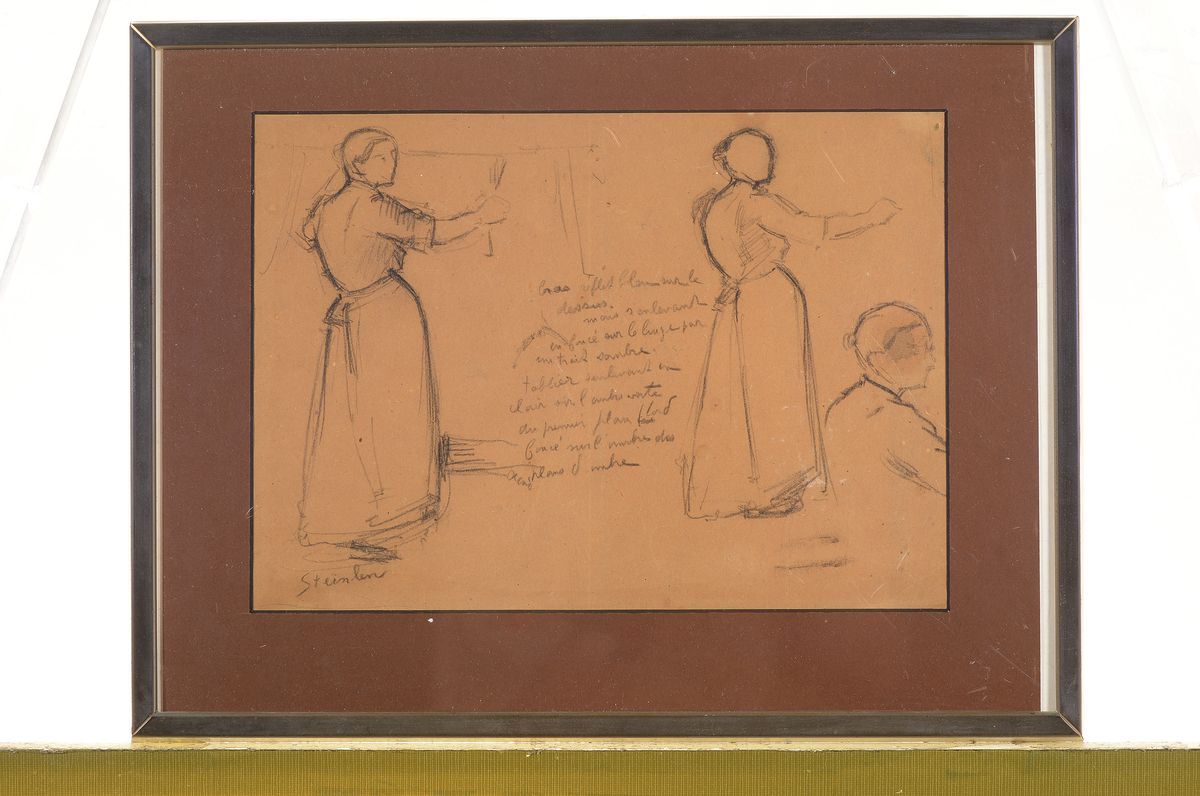 bras reflet blanc sur le
dessus.
mais s'enlevant
en foncé sur le linge par
un trait sombre.
tablier s'enlevant en
clair sur l'ombre verte
du premier plan
foncé sur l'ombre des
plans d'ombre
Steinlen